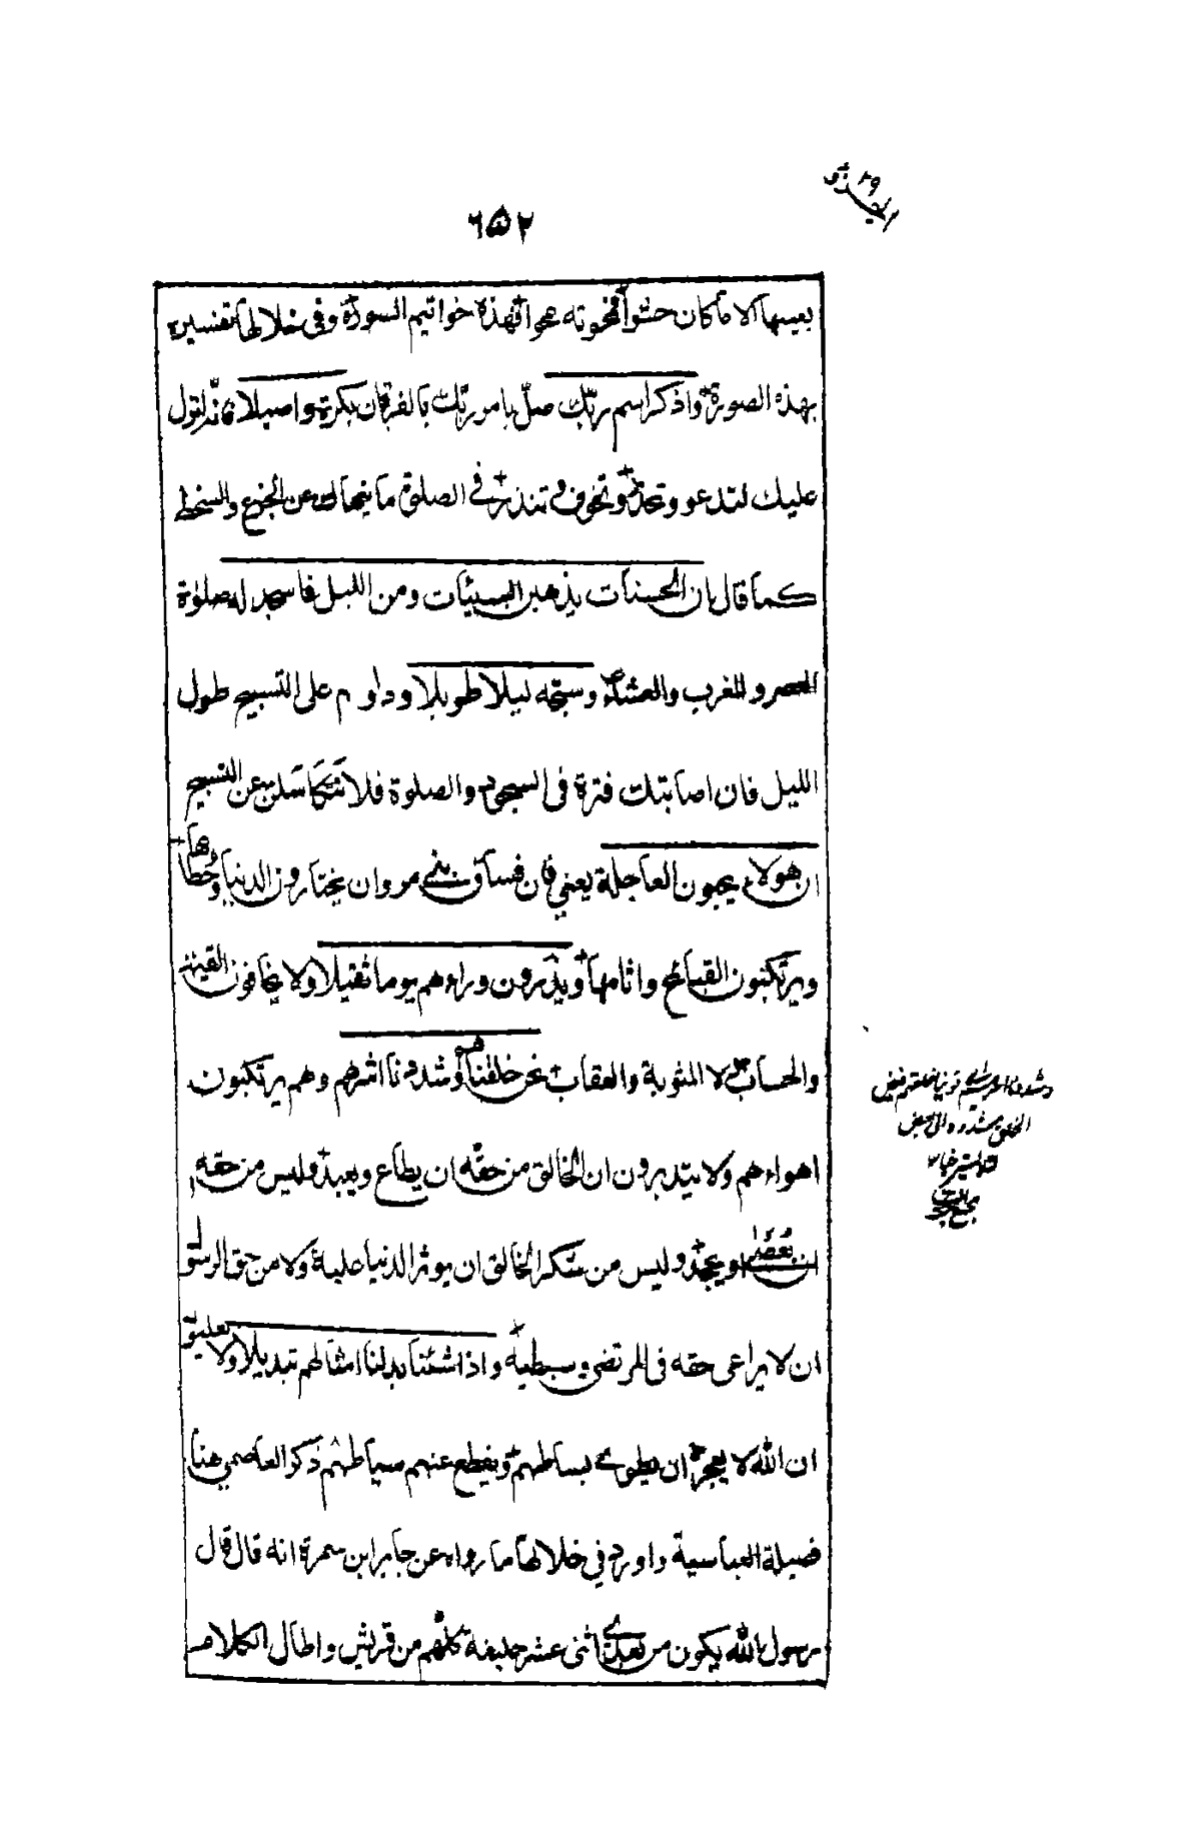 الجزؤ ٢٩
٦٥٢
بعينها الا ما كان حشوا فمحوته هو انهذه خواتيم السورة وفى خلالها تفسيره
بهذه الصورة واذكر اسم ربك صل بامر ربك بالفرقان بكرة واصيلا
عليك لتدعو وتحذر وتخوف وتنذر فى الصلوة ما ينهاك عن الجزع والسخط
كما قال ان الحسنات يذهبن السيئات ومن الليل فاسجد له صلوة
العصر والمغرب والعشاء وسبحه ليلا طويلا وداوم على التسبيح طول
الليل فان اصابتك فترة فى السجود والصلوة فلا تتكاسلن عن التسبيح
ان هولاء يحبون العاجلة يعني فان فساق بني مروان يختارون الدنيا وحطامها
ويرتكبون القبائح واثامها ويذرون وراءهم يوما ثقيلا ولا يخافون القيمة
والحساب ولا المثوبة والعقاب نحن خلقناهم وشددنا اسرهم وهم يرتكبون
اهواءهم ولا يتدبرون ان الخالق من حقه ان يطاع ويعبد وليس من حقه
ان يعصى او يجحد وليس من شكر الخالق ان يوثر الدنيا عليه ولا من حق الرسول
ان لا يراعى حقه فى المرتضى وسبطيه واذا شئنا بدلنا امثالهم تبديلا ولا
ان الله لا يعجز ان يطوى بساطهم ويقطع عنهم سياطهم ذكر العاصمي هنا
فضيلة العباسية واورد في خلالها ما رواه عن جابر ابن سمرة انه قال قال
رسول الله يكون من بعدي اثنى عشر خليفة كلهم من قريش واطال الكلام